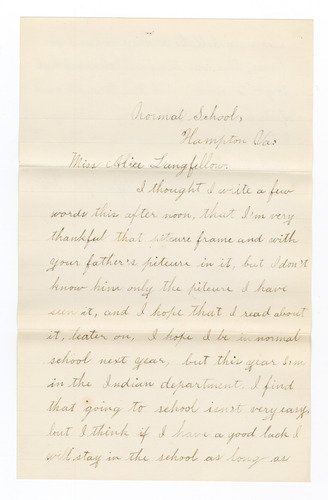 Normal School,
Hampton Va:
Miss Alice Langfellow.
I thought I write a few
words this after noon, that I'm very
thankful that pitcure frame and with
your father's pitcure in it, but I don't
know him only the pitcure I have
seen it, and I hope that I read about
it, leater on, I hope I be in normal
school next year, but this year I'm
in the Indian department. I find
that going to school isnot very easy,
but I think if I have a good luck I
will stay in the school as long as